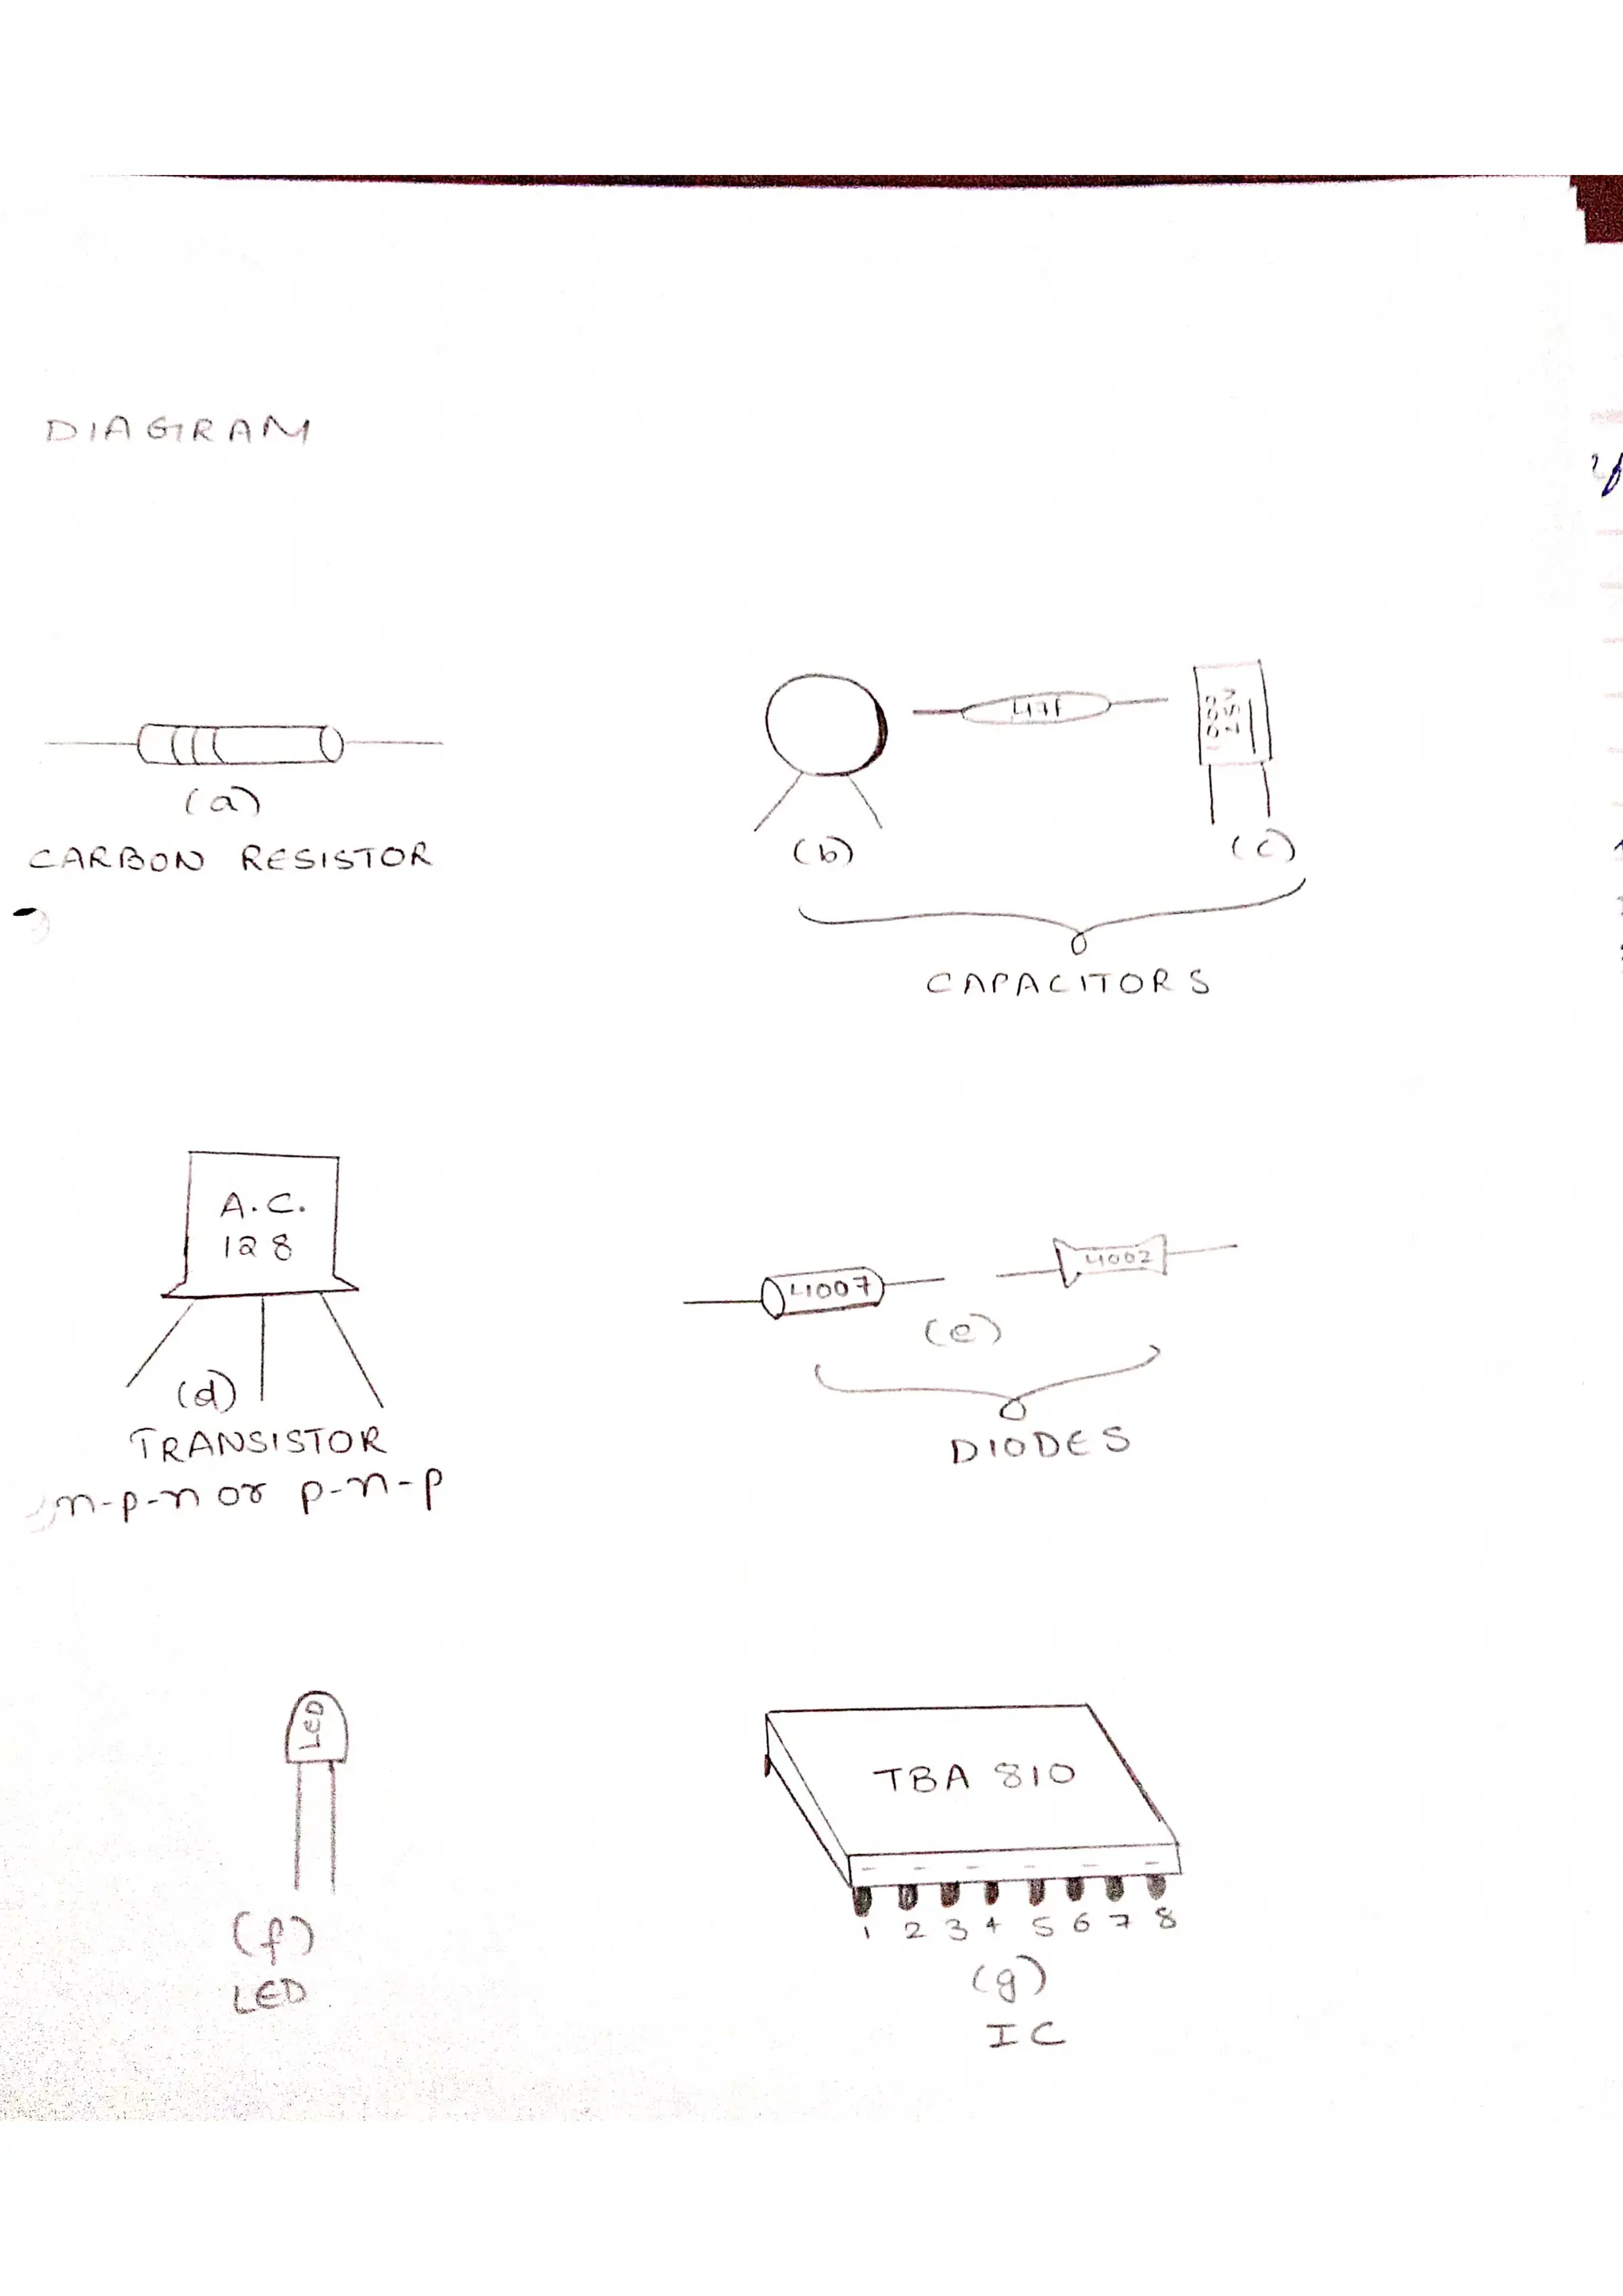 DIAGRAM
47f
25V
(a)
CARBON RESISTOR
(b)
(c)
CAPACITORS
A.C.
128
(d)
TRANSISTOR
n-p-n or p-n-p
4007
4002
(e)
DIODES
LED
(f)
LED
TBA 810
1 2 3 4 5 6 7 8
(g)
IC